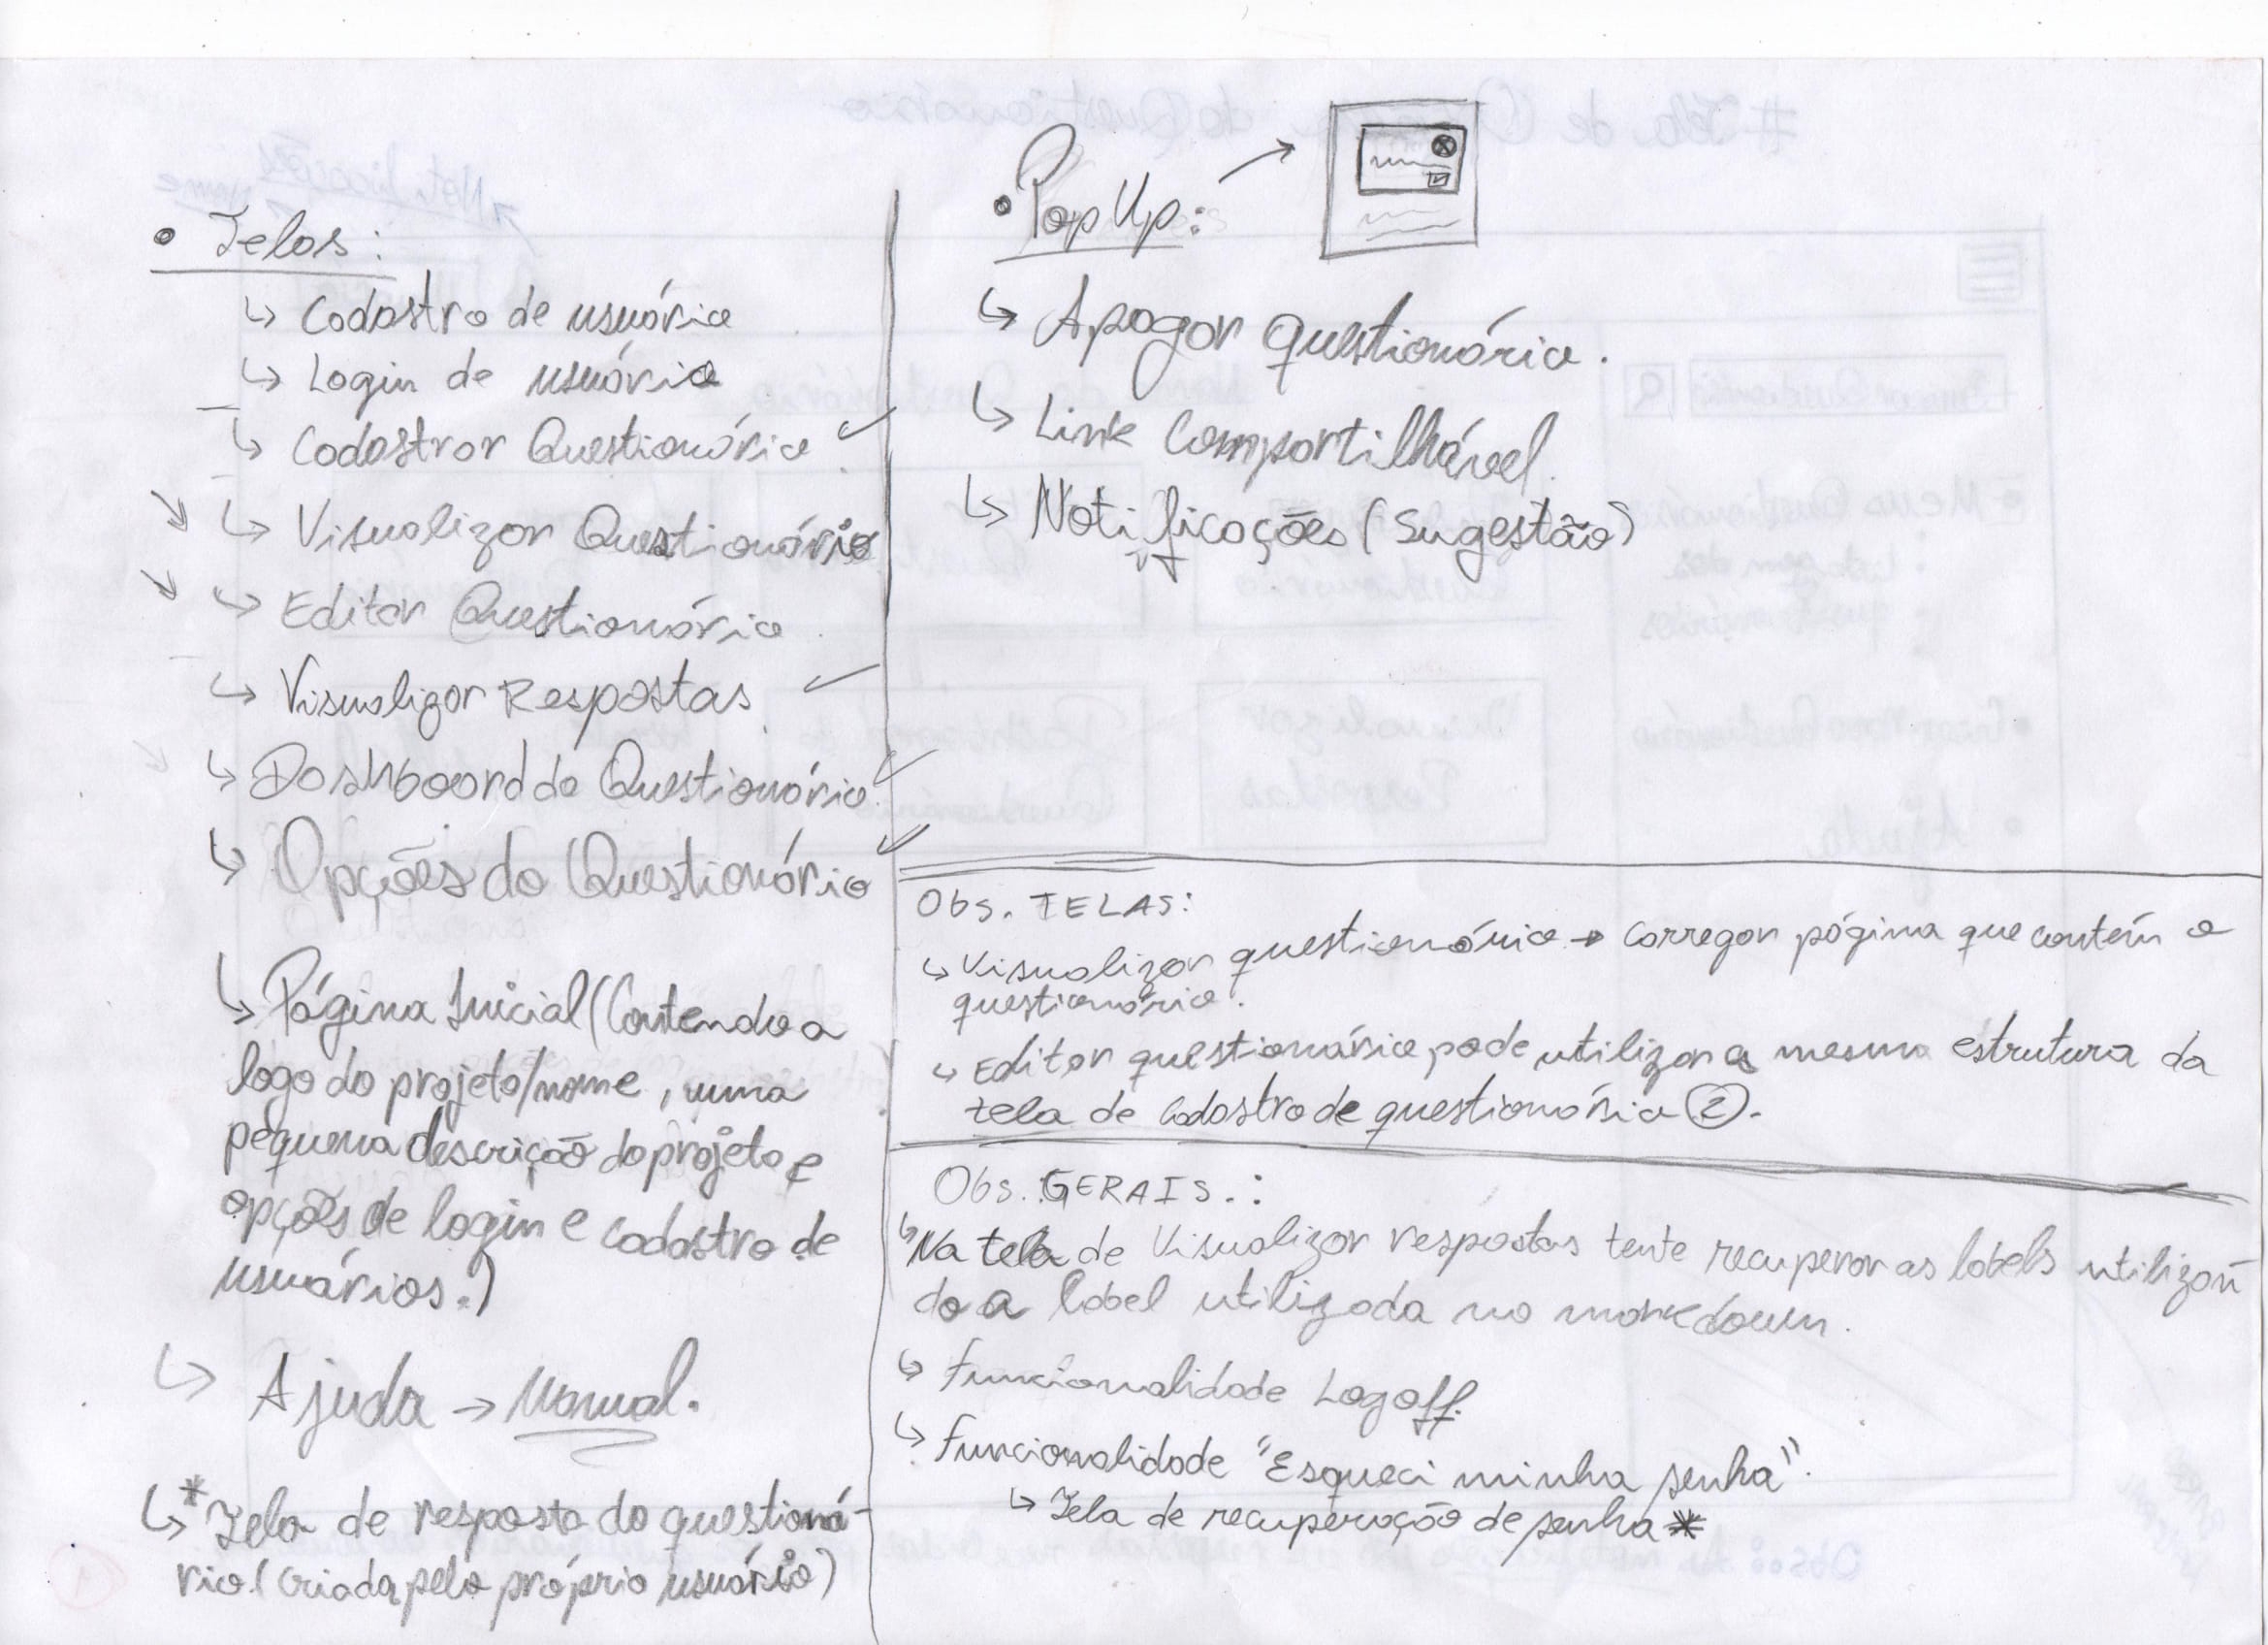 • Telas:
↳ Cadastro de usuário
↳ Login de usuário
↳ Cadastrar Questionário
↳ Visualizar Questionário
↳ Editar Questionário
↳ Visualizar Respostas
↳ Dashboard do Questionário
↳ Opções do Questionário
↳ Página Inicial (Contendo a
logo do projeto/nome, uma
pequena descrição do projeto e
opções de login e cadastro de
usuários.)
↳ Ajuda → Manual.
↳ * Tela de resposta do questioná-
rio. (criada pelo próprio usuário)
• Pop Up:
↳ Apagar questionário.
↳ Link Compartilhável.
↳ Notificações (Sugestão)
Obs. TELAS:
↳ Visualizar questionário → Carregar página que contém o
questionário.
↳ Editar questionário pode utilizar a mesma estrutura da
tela de cadastro de questionário ②.
Obs. GERAIS.:
↳ Na tela de Visualizar respostas tente recuperar as labels utilizan
do a label utilizada no markdown.
↳ Funcionalidade Logoff.
↳ Funcionalidade "Esqueci minha senha".
↳ Tela de recuperação de senha *